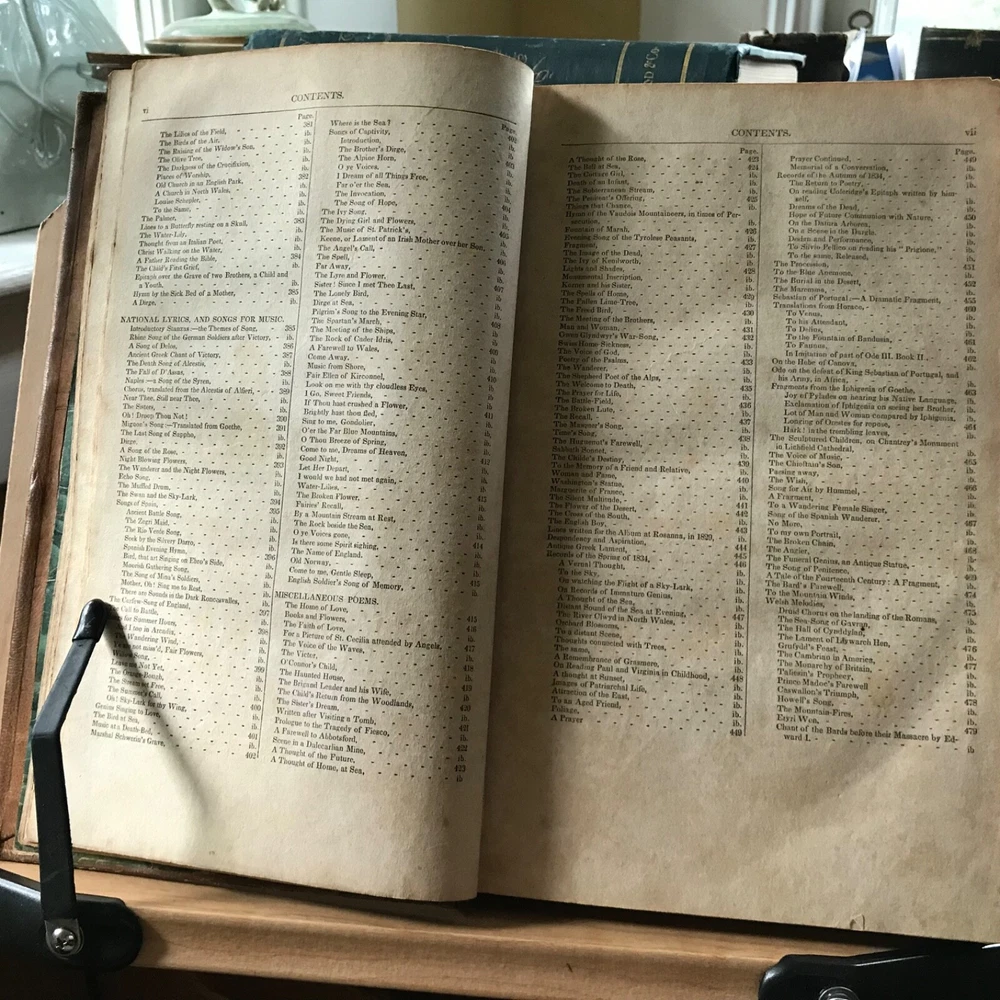 vi
CONTENTS.
Page.
The Lilies of the Field, 381
The Birds of the Air, ib.
The Raising of the Widow's Son, ib.
The Olive Tree, ib.
The Darkness of the Crucifixion, ib.
Places of Worship, 382
Old Church in an English Park, ib.
A Church in North Wales, ib.
Louise Schepler, ib.
To the Same, ib.
The Palmer, ib.
Lines to a Butterfly resting on a Skull, 383
The Water-Lily, ib.
Thought from an Italian Poet, ib.
Christ Walking on the Water, ib.
A Father Reading the Bible, 384
The Child's First Grief, ib.
Epitaph over the Grave of two Brothers, a Child and
a Youth, ib.
Hymn by the Sick Bed of a Mother, ib.
A Dirge, ib.
NATIONAL LYRICS, AND SONGS FOR MUSIC.
Introductory Stanzas:—the Themes of Song, 385
Rhine Song of the German Soldiers after Victory, ib.
A Song of Delos, 386
Ancient Greek Chant of Victory, 387
The Death Song of Alcestis, ib.
The Fall of D'Assas, 388
Naples:—a Song of the Syren, ib.
Chorus, translated from the Alcestis of Alfieri, 389
Near Thee, Still near Thee, ib.
The Sisters, ib.
Oh! Droop Thou Not! 390
Mignon's Song:—Translated from Goethe, 391
The Last Song of Sappho, ib.
Dirge, 392
A Song of the Rose, ib.
Night Blowing Flowers, ib.
The Wanderer and the Night Flowers, 393
Echo Song, ib.
The Muffled Drum, ib.
The Swan and the Sky-Lark, 394
Songs of Spain, 395
Ancient Battle Song, ib.
The Zegri Maid, ib.
The Rio Verde Song, ib.
Seek by the Silvery Darro, ib.
Spanish Evening Hymn, ib.
Bird, that art Singing on Ebro's Side, 396
Moorish Gathering Song, ib.
The Song of Mina's Soldiers, ib.
Mother, Oh! Sing me to Rest, ib.
There are Sounds in the Dark Roncesvalles, ib.
The Curfew-Song of England, ib.
Call to Battle, 397
for Summer Hours, ib.
Wandering Wind, ib.
miss'd, Fair Flowers, ib.
Leave Not Yet, ib.
The Orange-Bough, 399
Set Free, ib.
The Summer's Call, ib.
Oh! Sky-Lark for thy Wing, 400
Genius Singing to Love, ib.
The Bird at Sea, ib.
Music at a Death-Bed, 401
Marshal Schwerin's Grave, ib.
402
Page.
Where is the Sea? 402
Songs of Captivity, ib.
Introduction, ib.
The Brother's Dirge, ib.
The Alpine Horn, ib.
O ye Voices, 403
I Dream of all Things Free, ib.
Far o'er the Sea, ib.
The Invocation, ib.
The Song of Hope, ib.
The Ivy Song, 404
The Dying Girl and Flowers, ib.
The Music of St. Patrick's, ib.
Keene, or Lament of an Irish Mother over her Son, 405
The Angel's Call, ib.
The Spell, ib.
Far Away, 406
The Lyre and Flower, ib.
Sister! Since I met Thee Last, ib.
The Lonely Bird, 407
Dirge at Sea, ib.
Pilgrim's Song to the Evening Star, ib.
The Spartan's March, ib.
The Meeting of the Ships, ib.
The Rock of Cader-Idris, ib.
A Farewell to Wales, ib.
Come Away,
Music from Shore,
Fair Ellen of Kirconnel,
Look on me with thy cloudless Eyes,
I Go, Sweet Friends,
If Thou hast crushed a Flower,
Brightly hast thou fled, 411
Sing to me, Gondolier, ib.
O'er the Far Blue Mountains, ib.
O Thou Breeze of Spring, ib.
Come to me, Dreams of Heaven, ib.
Good Night, 412
Let Her Depart, ib.
I would we had not met again, ib.
Water-Lilies, ib.
The Broken Flower, 413
Fairies' Recall, ib.
By a Mountain Stream at Rest, ib.
The Rock beside the Sea, ib.
O ye Voices gone, ib.
Is there some Spirit sighing, 414
The Name of England, ib.
Old Norway, ib.
Come to me, Gentle Sleep, ib.
English Soldier's Song of Memory, 415
MISCELLANEOUS POEMS.
The Home of Love, 415
Books and Flowers, 416
The Faith of Love, ib.
For a Picture of St. Cecilia attended by Angels, 417
The Voice of the Waves, ib.
The Victor, 418
O'Connor's Child, ib.
The Haunted House, ib.
The Brigand Leader and his Wife, 419
The Child's Return from the Woodlands, ib.
The Sister's Dream, 420
Written after Visiting a Tomb, ib.
Prologue to the Tragedy of Fiesco, 421
A Farewell to Abbotsford, ib.
Scene in a Dalecarlian Mine, 422
A Thought of the Future, ib.
A Thought of Home, at Sea, 423
ib
CONTENTS.
vii
Page.
A Thought of the Rose, 423
The Bell at Sea, 424
The Cottage Girl, ib.
Death of an Infant, ib.
The Subterranean Stream, ib.
The Penitent's Offering, 425
Things that Change, ib.
Hymn of the Vaudois Mountaineers, in times of Per-
secution, ib.
Fountain of Marah, 426
Evening Song of the Tyrolese Peasants, ib.
Fragment, 427
The Image of the Dead, ib.
The Ivy of Kenilworth, ib.
Lights and Shades, 428
Monumental Inscription, ib.
Kaisos and his Sister, ib.
The Spells of Home, ib.
The Fallen Lime-Tree, 429
The Freed Bird, ib.
The Meeting of the Brothers, 430
Man and Woman, 431
Owen Glyndwyr's War-Song, ib.
Swiss Home-Sickness, 432
The Voice of God, ib.
Poetry of the Psalms, 433
The Wanderer, ib.
The Shepherd Poet of the Alps, ib.
The Welcome to Death, 435
The Prayer for Life, ib.
The Battle-Field, ib.
The Broken Lute, 436
The Recall, ib.
The Mariner's Song, 437
Time's Song, ib.
The Huguenot's Farewell, 438
Sabbath Sonnet, ib.
The Childe's Destiny, ib.
To the Memory of a Friend and Relative, 439
Woman and Fame, ib.
Washington's Statue, 440
Marguerite of France, ib.
The Silent Multitude, ib.
The Flower of the Desert, 441
The Cross of the South, 442
The English Boy, ib.
Lines written for the Album at Rosanna, in 1829, ib.
Despondency and Aspiration, 443
Antique Greek Lament, 444
Records of the Spring of 1834, 445
A Vernal Thought, 446
To the Sky, ib.
On watching the Flight of a Sky-Lark, ib.
On Records of Immature Genius, ib.
A Thought of the Sea, ib.
Distant Sound of the Sea at Evening, ib.
The River Clwyd in North Wales, 447
Orchard Blossoms, ib.
To a distant Scene, ib.
Thoughts connected with Trees, ib.
The same, ib.
A Remembrance of Grasmere, ib.
On Reading Paul and Virginia in Childhood, ib.
A thought at Sunset, 448
Images of Patriarchal Life, ib.
Attraction of the East, ib.
To an Aged Friend, ib.
Foliage, ib.
A Prayer 449
Page.
Prayer Continued, 449
Memorial of a Conversation, ib.
Records of the Autumn of 1834, ib.
The Return to Poetry, ib.
On reading Coleridge's Epitaph written by him-
self, ib.
Dreams of the Dead, ib.
Hope of Future Communion with Nature, 450
On the Datura Arborea, ib.
On a Scene in the Dargle, ib.
Design and Performance, ib.
To Silvio Pellico on reading his "Prigione," ib.
To the same, Released, ib.
The Procession, 451
To the Blue Anemone, ib.
The Burial in the Desert, 452
The Maremma, ib.
Sebastian of Portugal:—A Dramatic Fragment, 455
Translations from Horace, 460
To Venus, ib.
To his Attendant, ib.
To Delius, ib.
To the Fountain of Bandusia, ib.
To Faunus, 461
In Imitation of part of Ode III. Book II., ib.
On the Hebe of Canova, 462
Ode on the defeat of King Sebastian of Portugal, and
his Army, in Africa, ib.
Fragments from the Iphigenia of Goethe, 463
Joy of Pylades on hearing his Native Language, ib.
Exclamation of Iphigenia on seeing her Brother, ib.
Lot of Man and Woman compared by Iphigenia, ib.
Longing of Orestes for repose, ib.
Hark! in the trembling leaves, 464
The Sculptured Children, on Chantrey's Monument
in Lichfield Cathedral, ib.
The Voice of Music, ib.
The Chieftain's Son, 465
Passing away, ib.
The Wish, ib.
Song for Air by Hummel, 466
A Fragment, ib.
To a Wandering Female Singer, ib.
Song of the Spanish Wanderer, ib.
No More, 467
To my own Portrait, ib.
The Broken Chain, ib.
The Angler, 468
The Funeral Genius, an Antique Statue, ib.
The Song of Penitence, ib.
A Tale of the Fourteenth Century: A Fragment, 469
The Bard's Farewell, ib.
To the Mountain Winds, 474
Welsh Melodies, ib.
Druid Chorus on the landing of the Romans, 475
The Sea-Song of Gavran, ib.
The Hall of Cynddylan, ib.
The Lament of Llywarch Hen, ib.
Grufydd's Feast, 476
The Cambrian in America, ib.
The Monarchy of Britain, 477
Taliesin's Prophecy, ib.
Prince Madoc's Farewell ib.
Caswallon's Triumph, ib.
Howell's Song, 478
The Mountain-Fires, ib.
Eryri Wen, ib.
Chant of the Bards before their Massacre by Ed- 479
ward I. ib